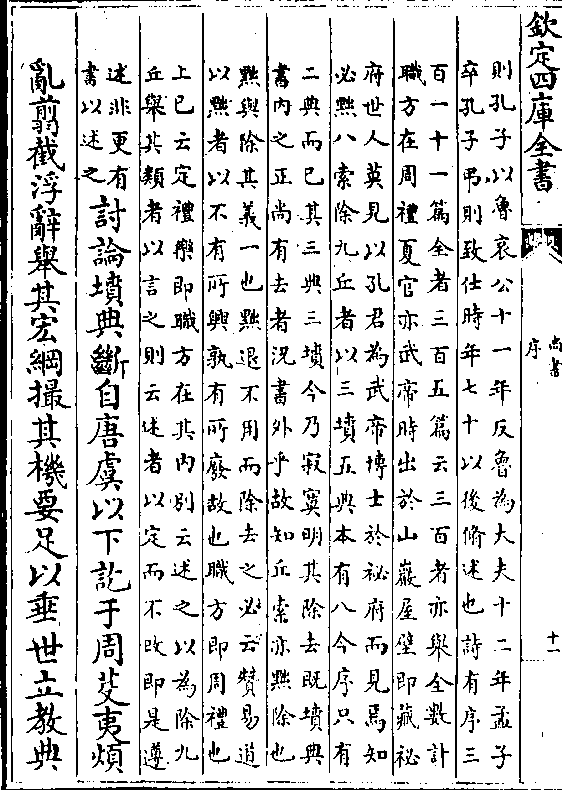 欽定四庫全書
尚書序
十一
則孔子以魯哀公十一年反魯為大夫十二年孟子
卒孔子弔則致仕時年七十以後脩述也詩有序三
百一十一篇全者三百五篇云三百者亦舉全數計
職方在周禮夏官亦武帝時出於山巖屋壁即藏祕
府世人莫見以孔君為武帝博士於祕府而見焉知
必黜八索除九丘者以三墳五典本有八今序只有
二典而已其三典三墳今乃寂寞明其除去既墳典
書內之正尚有去者況書外乎故知丘索亦黜除也
黜與除其義一也黜退不用而除去之必云贊易道
以黜者以不有所興孰有所廢故也職方即周禮也
上已云定禮樂即職方在其內別云述之以為除九
丘舉其類者以言之則云述者以定而不改即是遵
述非更有
書以述之
討論墳典斷自唐虞以下訖于周芟夷煩
亂翦截浮辭舉其宏綱撮其機要足以垂世立教典